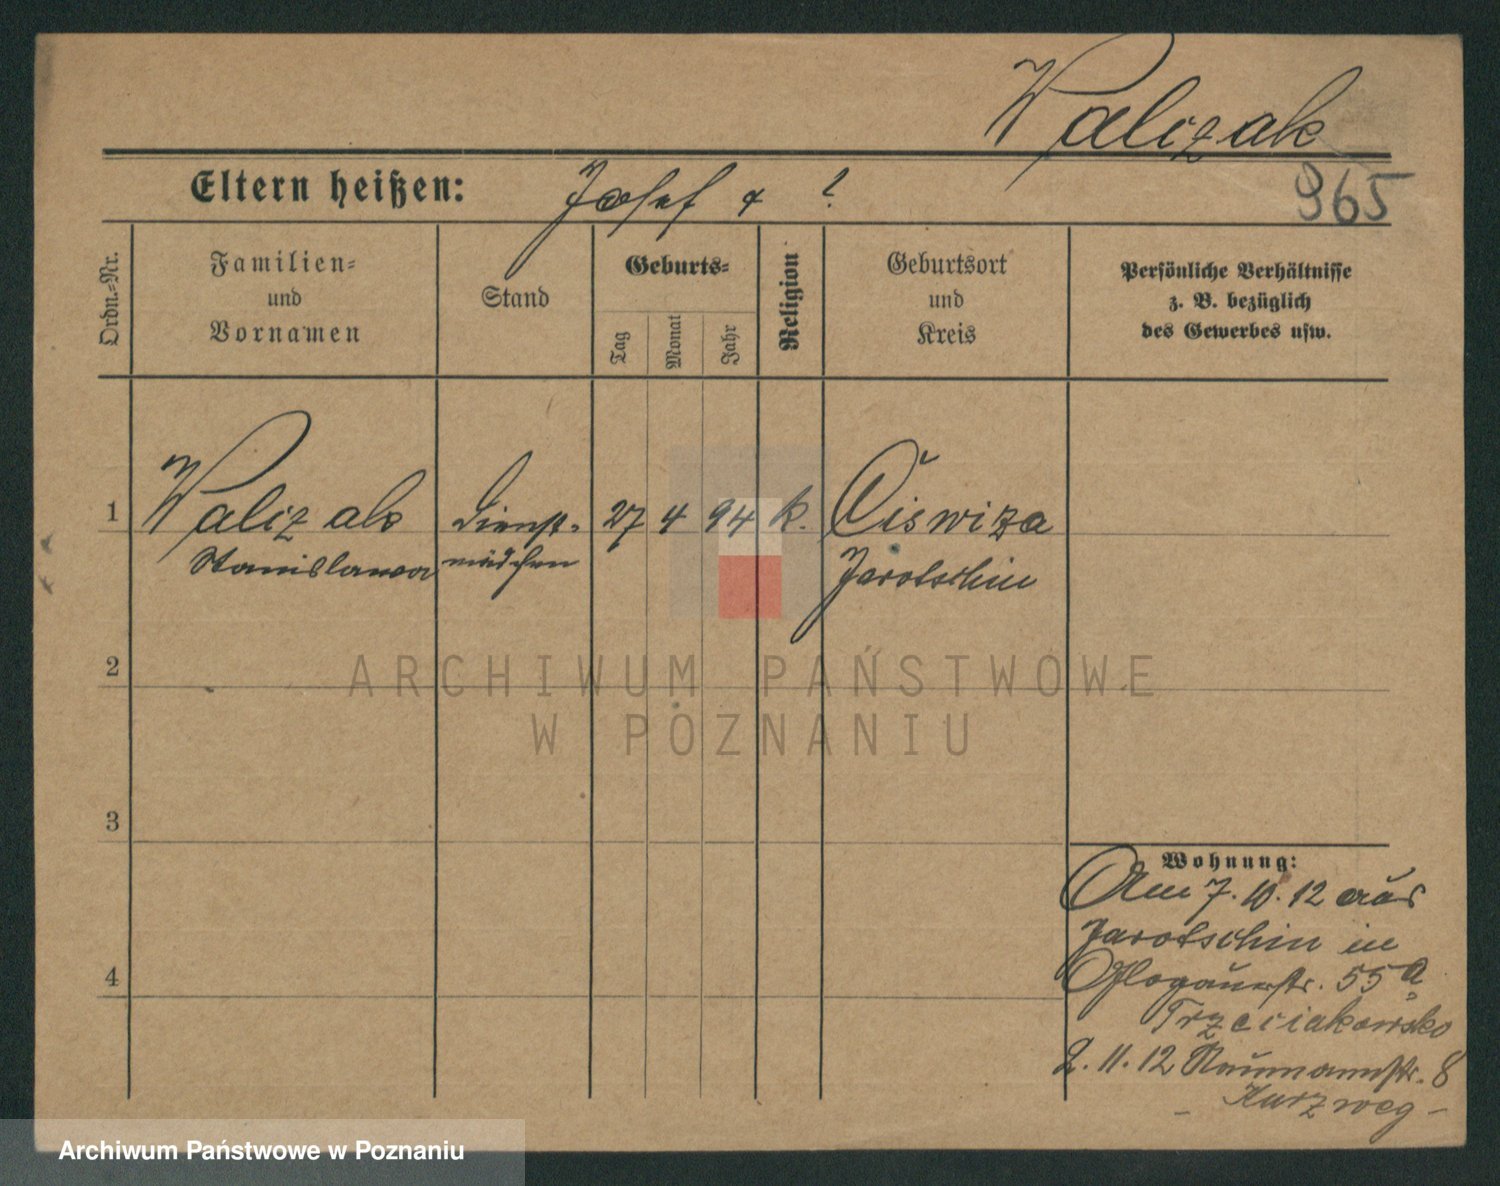 Walczak
Eltern heißen: Josef & ?
965
Ordn.-Nr.
Familien-
und
Vornamen
Stand
Geburts-
Tag
Monat
Jahr
Religion
Geburtsort
und
Kreis
Persönliche Verhältnisse
z. B. bezüglich
des Gewerbes usw.
1 Walczak Dienst- 27 4 94 k. Ciświza
Stanislawa mädchen Jarotschin
2
ARCHIWUM PAŃSTWOWE
W POZNANIU
3
Wohnung:
Am 7.10.12 aus
Jarotschin in
Glogauerstr. 55 a
4
Trzeciakowsko
2.11.12 Naumannstr. 8
- Kurzweg -
Archiwum Państwowe w Poznaniu